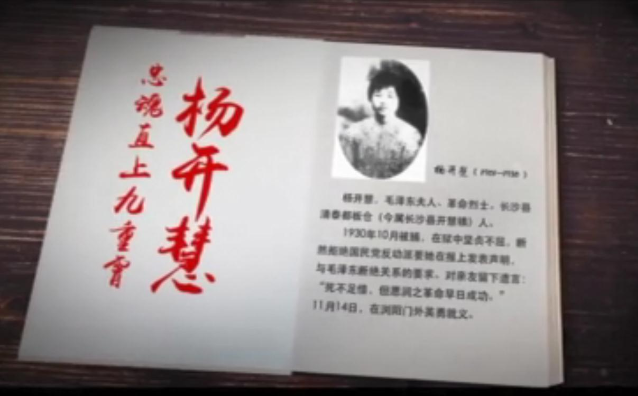 杨开慧
忠魂直上九重霄
杨开慧（1901—1930）
杨开慧，毛泽东夫人、革命烈士，长沙县
清泰都板仓（今属长沙县开慧镇）人。
1930年10月被捕，在狱中坚贞不屈，断
然拒绝国民党反动派要她在报上发表声明，
与毛泽东断绝关系的要求，对亲友留下遗言：
“死不足惜，但愿润之革命早日成功。”
11月14日，在浏阳门外英勇就义。